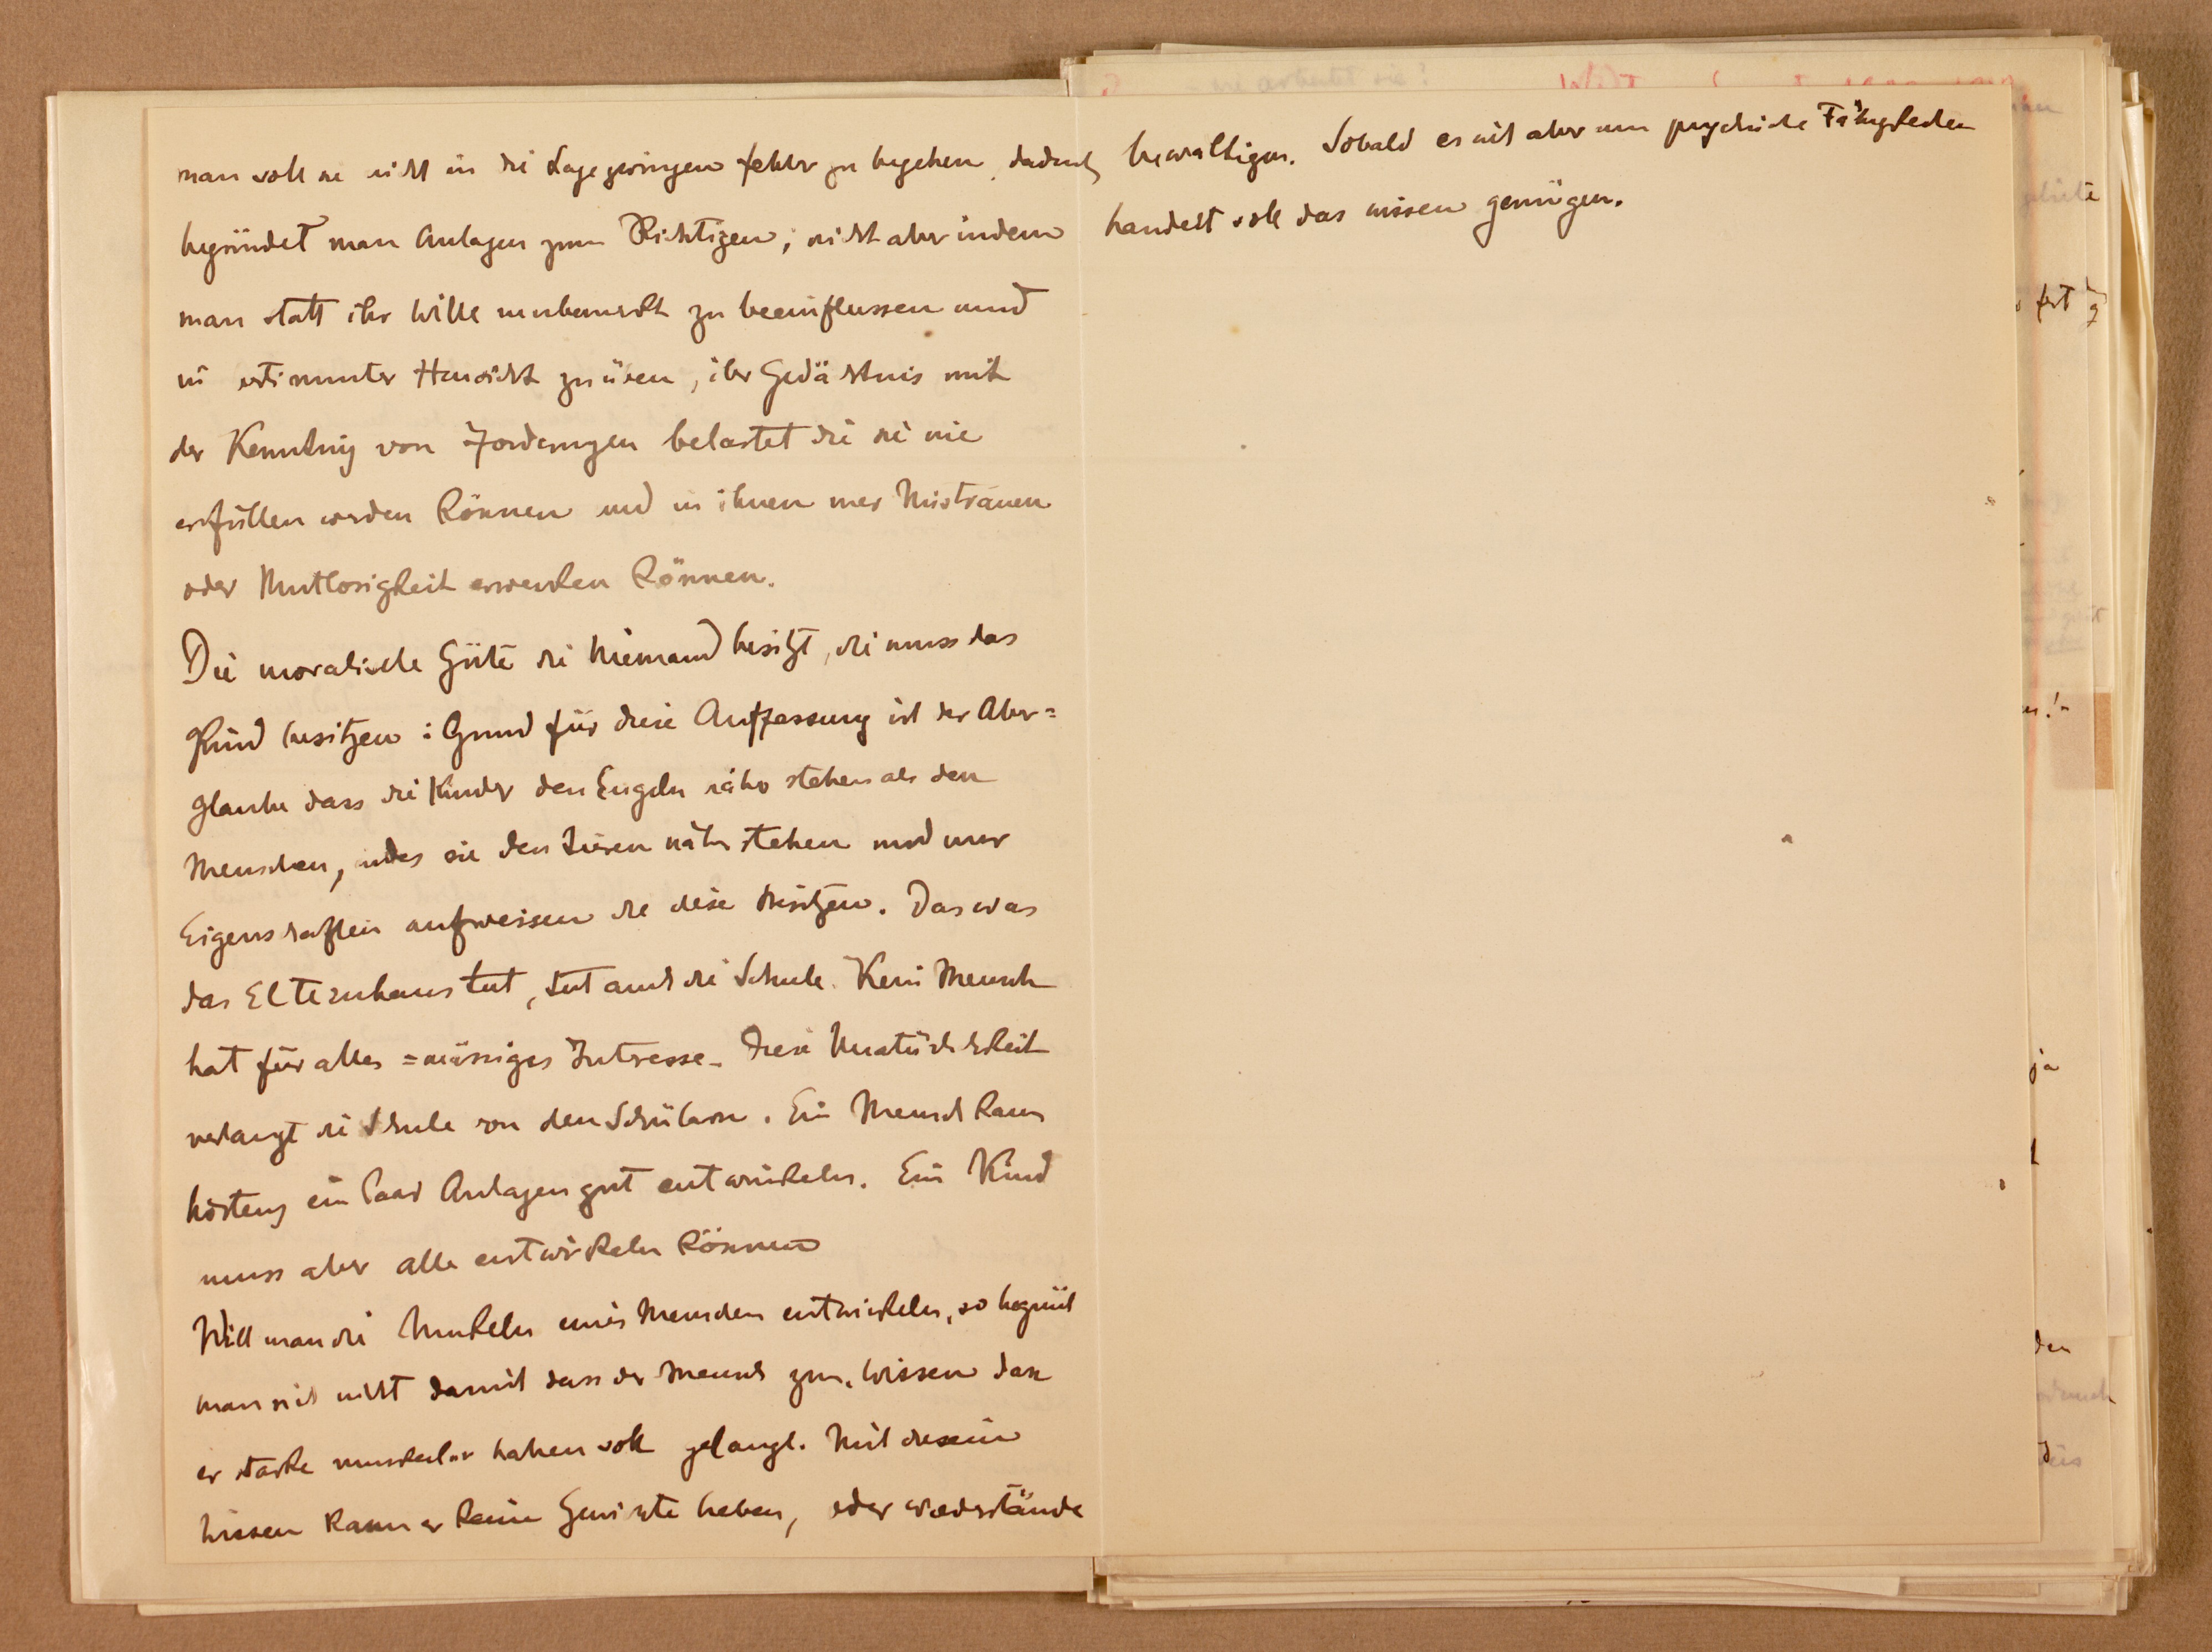 man soll sie nicht in die Lage zwingen fehler zu begehen, dadurch
begründet man Anlagen zum Richtigen; nicht aber indem
man statt ihr Wille unbemerkt zu beeinflussen und
in bestimmter Hinsicht zu üben, ihr Gedächtnis mit
der Kenntnis von Forderungen belastet die sie nie
erfüllen werden können und in ihnen nur Mistrauen
oder Mutlosigkeit erwecken können.
Die moralische Güte die Niemand besitzt, die muss das
Kind besitzen: Grund für diese Auffassung ist der Aber=
glaube dass die Kinder den Engeln näher stehen als den
Menschen, indes sie den Tieren näher stehen und nur
Eigenschaften aufweisen die diese besitzen. Das was
das Elternhaus tut, tut auch die Schule. Kein Mensch
hat für alles =mässiges Intresse. Diese Unnatürlichkeit
verlangt die Schule von den Schülern. Ein Mensch kann
höstens ein Paar Anlagen gut entwickeln. Ein Kind
muss aber alle entwickeln können
Will man die Muskeln eines Menschen entwickeln, so begnügt
man sich nicht damit dass der Mensch zum Wissen dass
er starke muskeln haben soll gelangt. Mit diesem
Wissen kann er keine Gewichte heben, oder wiederstände
bewältigen. Sobald es sich aber um psychische Fähigkeiten
handelt soll das wissen genügen.